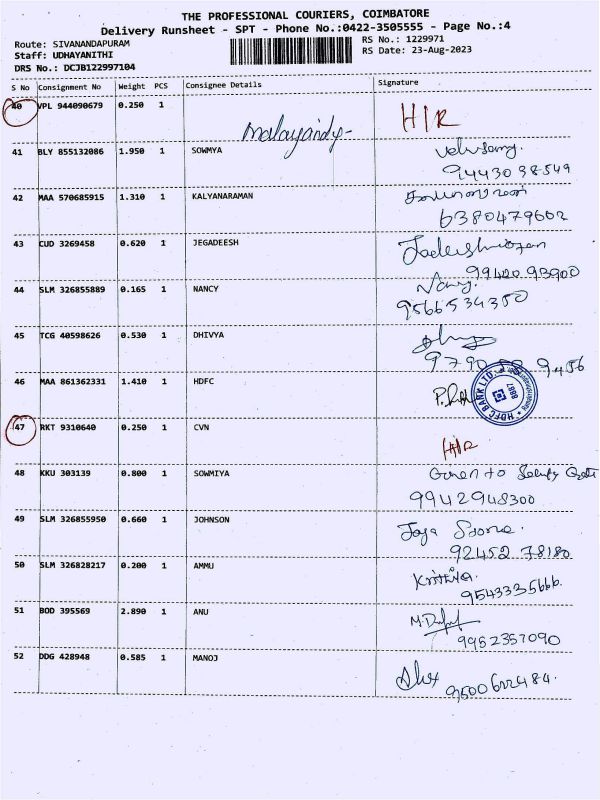 THE PROFESSIONAL COURIERS, COIMBATORE
Delivery Runsheet - SPT - Phone No.:0422-3505555 - Page No.:4
Route: SIVANANDAPURAM
RS No.: 1229971
Staff: UDHAYANITHI
RS Date: 23-Aug-2023
DRS No.: DCJB122997104
S No Consignment No Weight PCS Consignee Details Signature
40 VPL 944090679 0.250 1 Malayandy- H/R
41 BLY 855132086 1.950 1 SOWMYA Velusamy.
9443038549
42 MAA 570685915 1.310 1 KALYANARAMAN
6380479602
43 CUD 3269458 0.620 1 JEGADEESH
99420 93900
44 SLM 326855889 0.165 1 NANCY Nancy.
9566534350
45 TCG 40598626 0.530 1 DHIVYA
46 MAA 861362331 1.410 1 HDFC
HDFC BANK LTD.
47 RKT 9310640 0.250 1 CVN
H/R
48 KKU 303139 0.800 1 SOWMIYA Given to Security Gate
9942948300
49 SLM 326855950 0.660 1 JOHNSON Jaya
92452 78180
50 SLM 326828217 0.200 1 AMMU Krithika.
9543335666.
51 BOD 395569 2.890 1 ANU
9952357090
52 DDG 428948 0.585 1 MANOJ